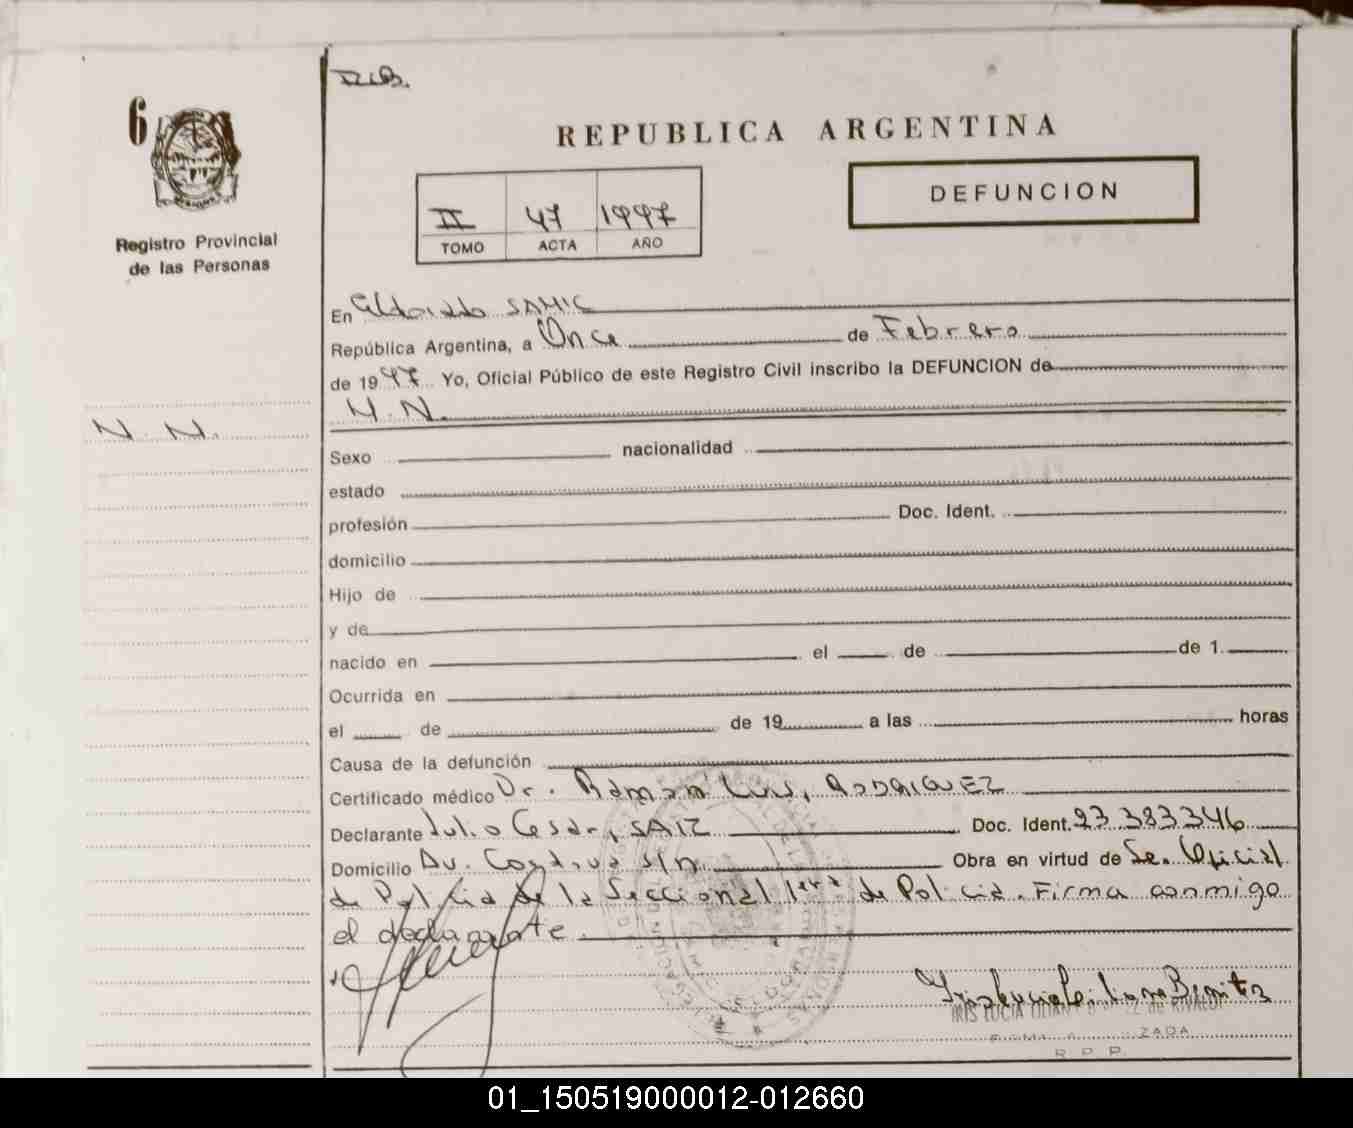 6
REPUBLICA ARGENTINA
DEFUNCION
II 47 1997
TOMO ACTA AÑO
Registro Provincial
de las Personas
En Eldorado SAMIC
República Argentina, a Once de Febrero
de 1997 Yo, Oficial Público de este Registro Civil inscribo la DEFUNCION de
N.N.
N. N.
Sexo nacionalidad
estado
profesión Doc. Ident.
domicilio
Hijo de
y de
nacido en el de de 1
Ocurrida en
el de de 19 a las horas
Causa de la defunción
Certificado médico Dr. Ramon Luis, RODRIGUEZ
Declarante Julio Cesar, SAIZ Doc. Ident. 23.383.346
Domicilio Av. Cordova s/n Obra en virtud de Se. Oficial
de Policia de la Seccional 1era de Policia. Firma conmigo
el declarante.
IRIS LUCIA LILIAN de RIVALDI
R. P. P.
01_150519000012-012660